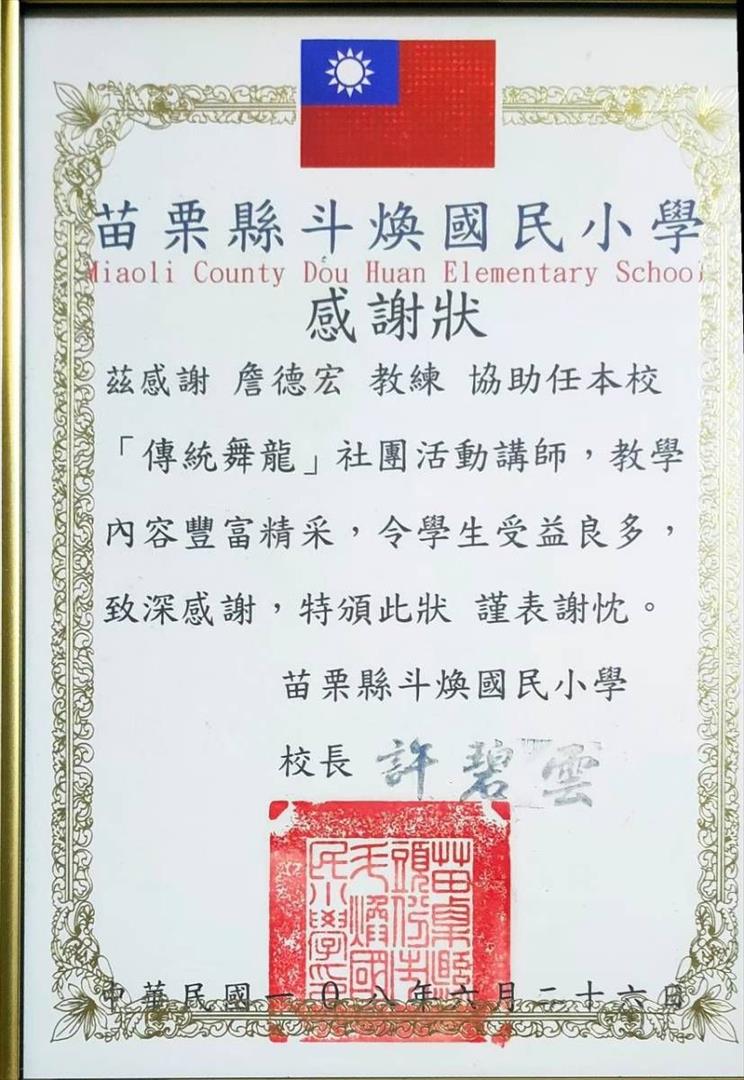 苗栗縣斗煥國民小學
Miaoli County Dou Huan Elementary School
感謝狀
茲感謝 詹德宏 教練 協助任本校
「傳統舞龍」社團活動講師,教學
內容豐富精采,令學生受益良多,
致深感謝,特頒此狀 謹表謝忱。
苗栗縣斗煥國民小學
校長 許碧雲
中華民國一0八年六月二十六日